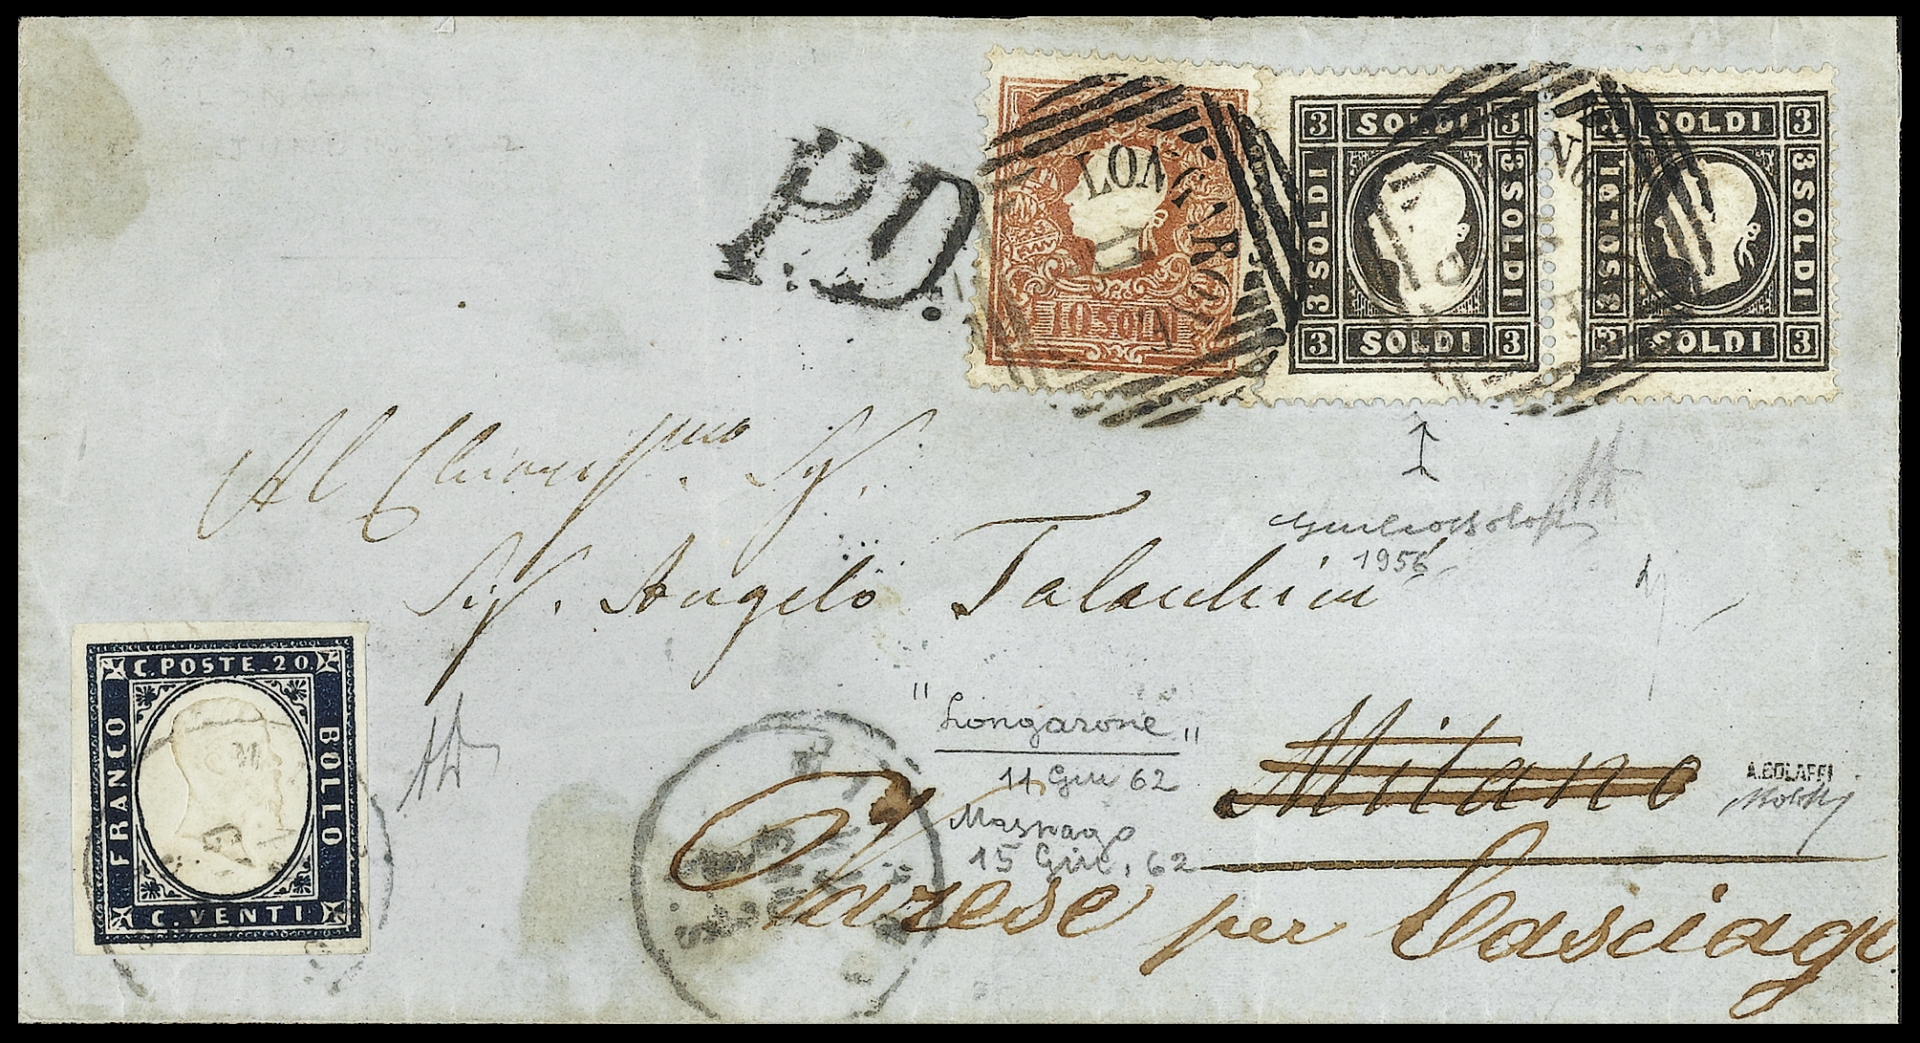 P.D.
LONGARONE
10 SOLDI
3 SOLDI 3
3 SOLDI
3 SOLDI
3 SOLDI 3
SOLDI 3
3 SOLDI
3 SOLDI
3 SOLDI 3
Al
Sig. Angelo
1956
C. POSTE. 20.
FRANCO
BOLLO
C. VENTI.
"Longarone"
11 Giu 62
Masnago
15 Giu, 62
Milano
A. BOLAFFI
Varese per Casciago